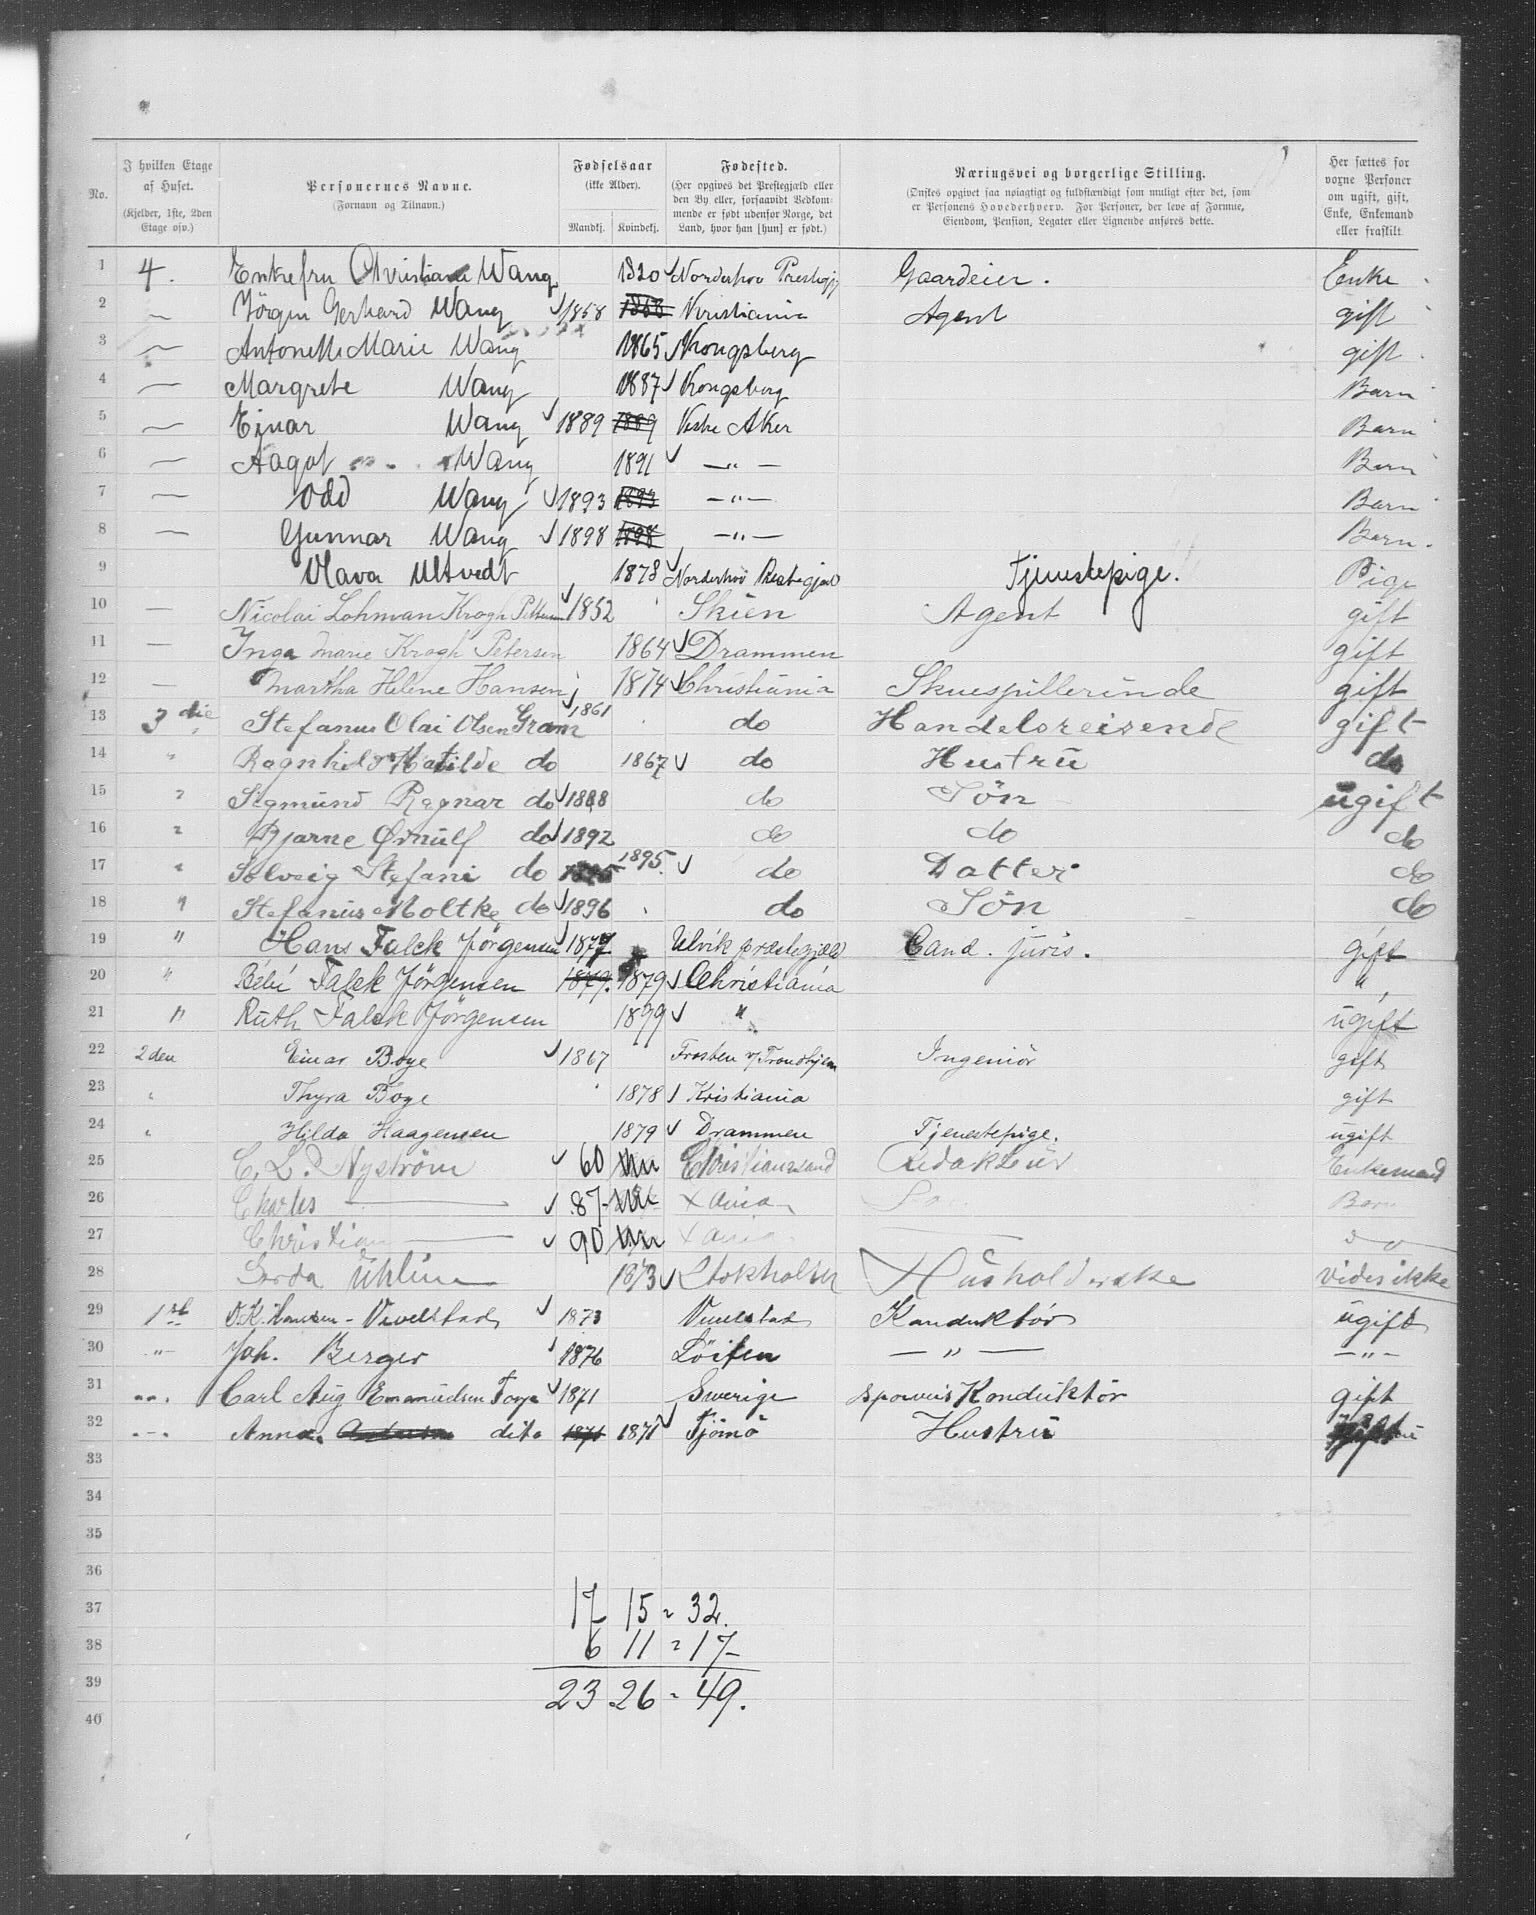 No. | I hvilken Etage af Huset. (Kjelder, 1ste, 2den Etage osv.) | Personernes Navne. (Fornavn og Tilnavn.) | Fødselsaar (ikke Alder). Mandkj. Kvindekj. | Fødested. (Her opgives det Prestegjæld eller den By eller, forsaavidt Vedkommende er født udenfor Norge, det Land, hvor han [hun] er født.) | Næringsvei og borgerlige Stilling. (Ønskes opgivet saa nøiagtigt og fuldstændigt som muligt efter det, som er Personens Hovederhverv. For Personer, der leve af Formue, Eiendom, Pension, Legater eller Lignende anføres dette.) | Her sættes for voxne Personer om ugift, gift, Enke, Enkemand eller fraskilt
1 4. Enkefru Christiane Wang 1820 Norderhov Prestegj Gaardeier. Enke
2 — Jörgen Gerhard Wang 1858 1858 Kristiania Agent gift
3 — Antonette Marie Wang 1865 Kongsberg gift
4 — Margrete Wang 1887 Kongsberg Barn
5 — Ejnar Wang 1889 1889 Vestre Aker Barn
6 — Aagot Wang 1891 —"— Barn
7 — Odd Wang 1893 1893 —"— Barn
8 — Gunnar Wang 1898 1898 —"— Barn.
9 Olava Ultvedt 1873 Norderhov Prestegjæld Tjenestepige. Pige
10 — Nicolai Lohman Krogh Petersen 1852 Skien Agent gift
11 — Inga Marie Krogh Petersen 1864 Drammen gift
12 — Martha Helene Hansen 1874 Christiania Skuespillerinde gift
13 3die Stefanus Olai Olsen Gram 1861 do Handelsreisende gift
14 " Ragnhild Matilde do 1867 do Hustru do
15 " Sigmund Ragnar do 1888 do Søn ugift
16 " Bjarne Ørnulf do 1892 do do do
17 " Solveig Stefani do 1895 1895. do Datter do
18 " Stefanus Moltke do 1896 do Søn do
19 " Hans Falck Jörgensen 1877 Ulvik præstegjæld Cand. juris. gift
20 " Bébé Falck Jörgensen 1879. 1879 Christiania "
21 " Ruth Falck Jörgensen 1899 " ugift
22 2den Einar Boye 1867 Frosten v/ Trondhjem Ingeniör gift
23 " Thyra Boye 1878 Kristiania gift
24 " Hilda Haagensen 1879 Drammen Tjenestepige. ugift
25 C. L. Nyström 60 Christianssand Redaktör Enkemand
26 Charles — 87 Xania Barn
27 Christian — 90 Xania do
28 Gerda Uhlin 1873 Stokholm Husholderske vides ikke
29 1st O.K. Hansen-Vevelstad 1873 Vevelstad Konduktör ugift
30 —"— Joh. Berger 1876 Löiten —"— —"—
31 —"— Carl Aug Emanuelsen 1871 Sverige sporveis Konduktör gift
32 —"— Anna dito 1871 1871 Tjömö Hustru gift
33
34
35
36
37 17 15 = 32.
38 6 11 = 17
39 23 26 = 49.
40